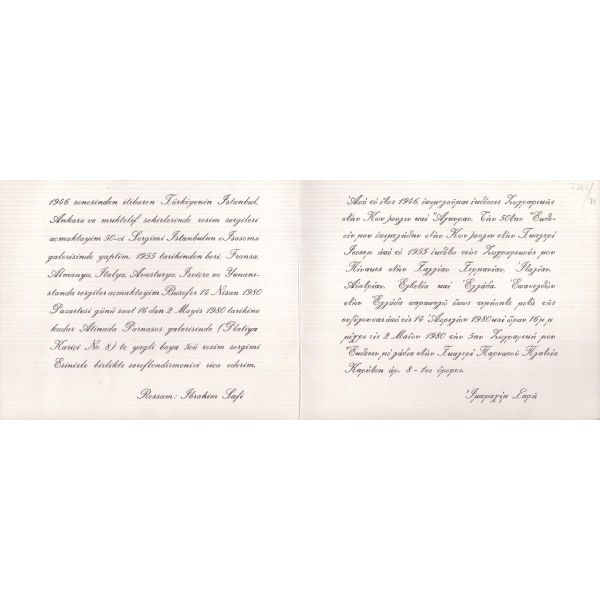 1946 senesinden itibaren Türkiyenin İstanbul,
Ankara ve muhtelif sehirlerinde resim sergileri
açmaktayim 50-ci Sergimi İstanbulun
galerisinde yaptim. 1955 tarihinden beri, Fransa.
Almanya. İtalya. Avusturya. İsviçre ve Yunanis-
standa sergiler açmaktayim Busefer 14 Nisan 1980
Pazartesi günü saat 16 dan 2 Mayis 1980 tarihine
kadar Atinada Parnasos galerisinde (Platiya
Karici No 8) te yagli boya resim sergimi
Esinizle birlikte sereflendirmenizi rica ederim.
Ressam: İbrahim Safi
Ἀπό τό ἔτος 1946, ἐκθέσεις Ζωγραφικῆς
στήν Κων/πολιν καί Ἄγκυραν. Τήν 50την Ἔκθε-
σίν μου στήν Κων/πολιν στήν Γκαλερί
ἀπό τό 1955 ἐκθέτω τούς Ζωγραφικούς μου
Πίνακες στήν Γαλλίαν Γερμανίαν. Ἰταλίαν.
Αὐστρίαν. Ἑλβετία καί Ἑλλάδα.
στήν Ἑλλάδα ὅπως μετά τῆς
συζύγου σας ἀπό τίς 14 Ἀπριλίου 1980 καί ὥραν 16 μ μ
μέχρι τίς 2 Μαΐου 1980 τήν 5ην Ζωγραφική μου
Ἔκθεσιν μέ λάδια στήν Γκαλερί Παρνασοῦ Πλατεῖα
Καρύτση ἀρ. 8 - 1ος ὄροφος.
Ἰμπραχίμ Σαφή